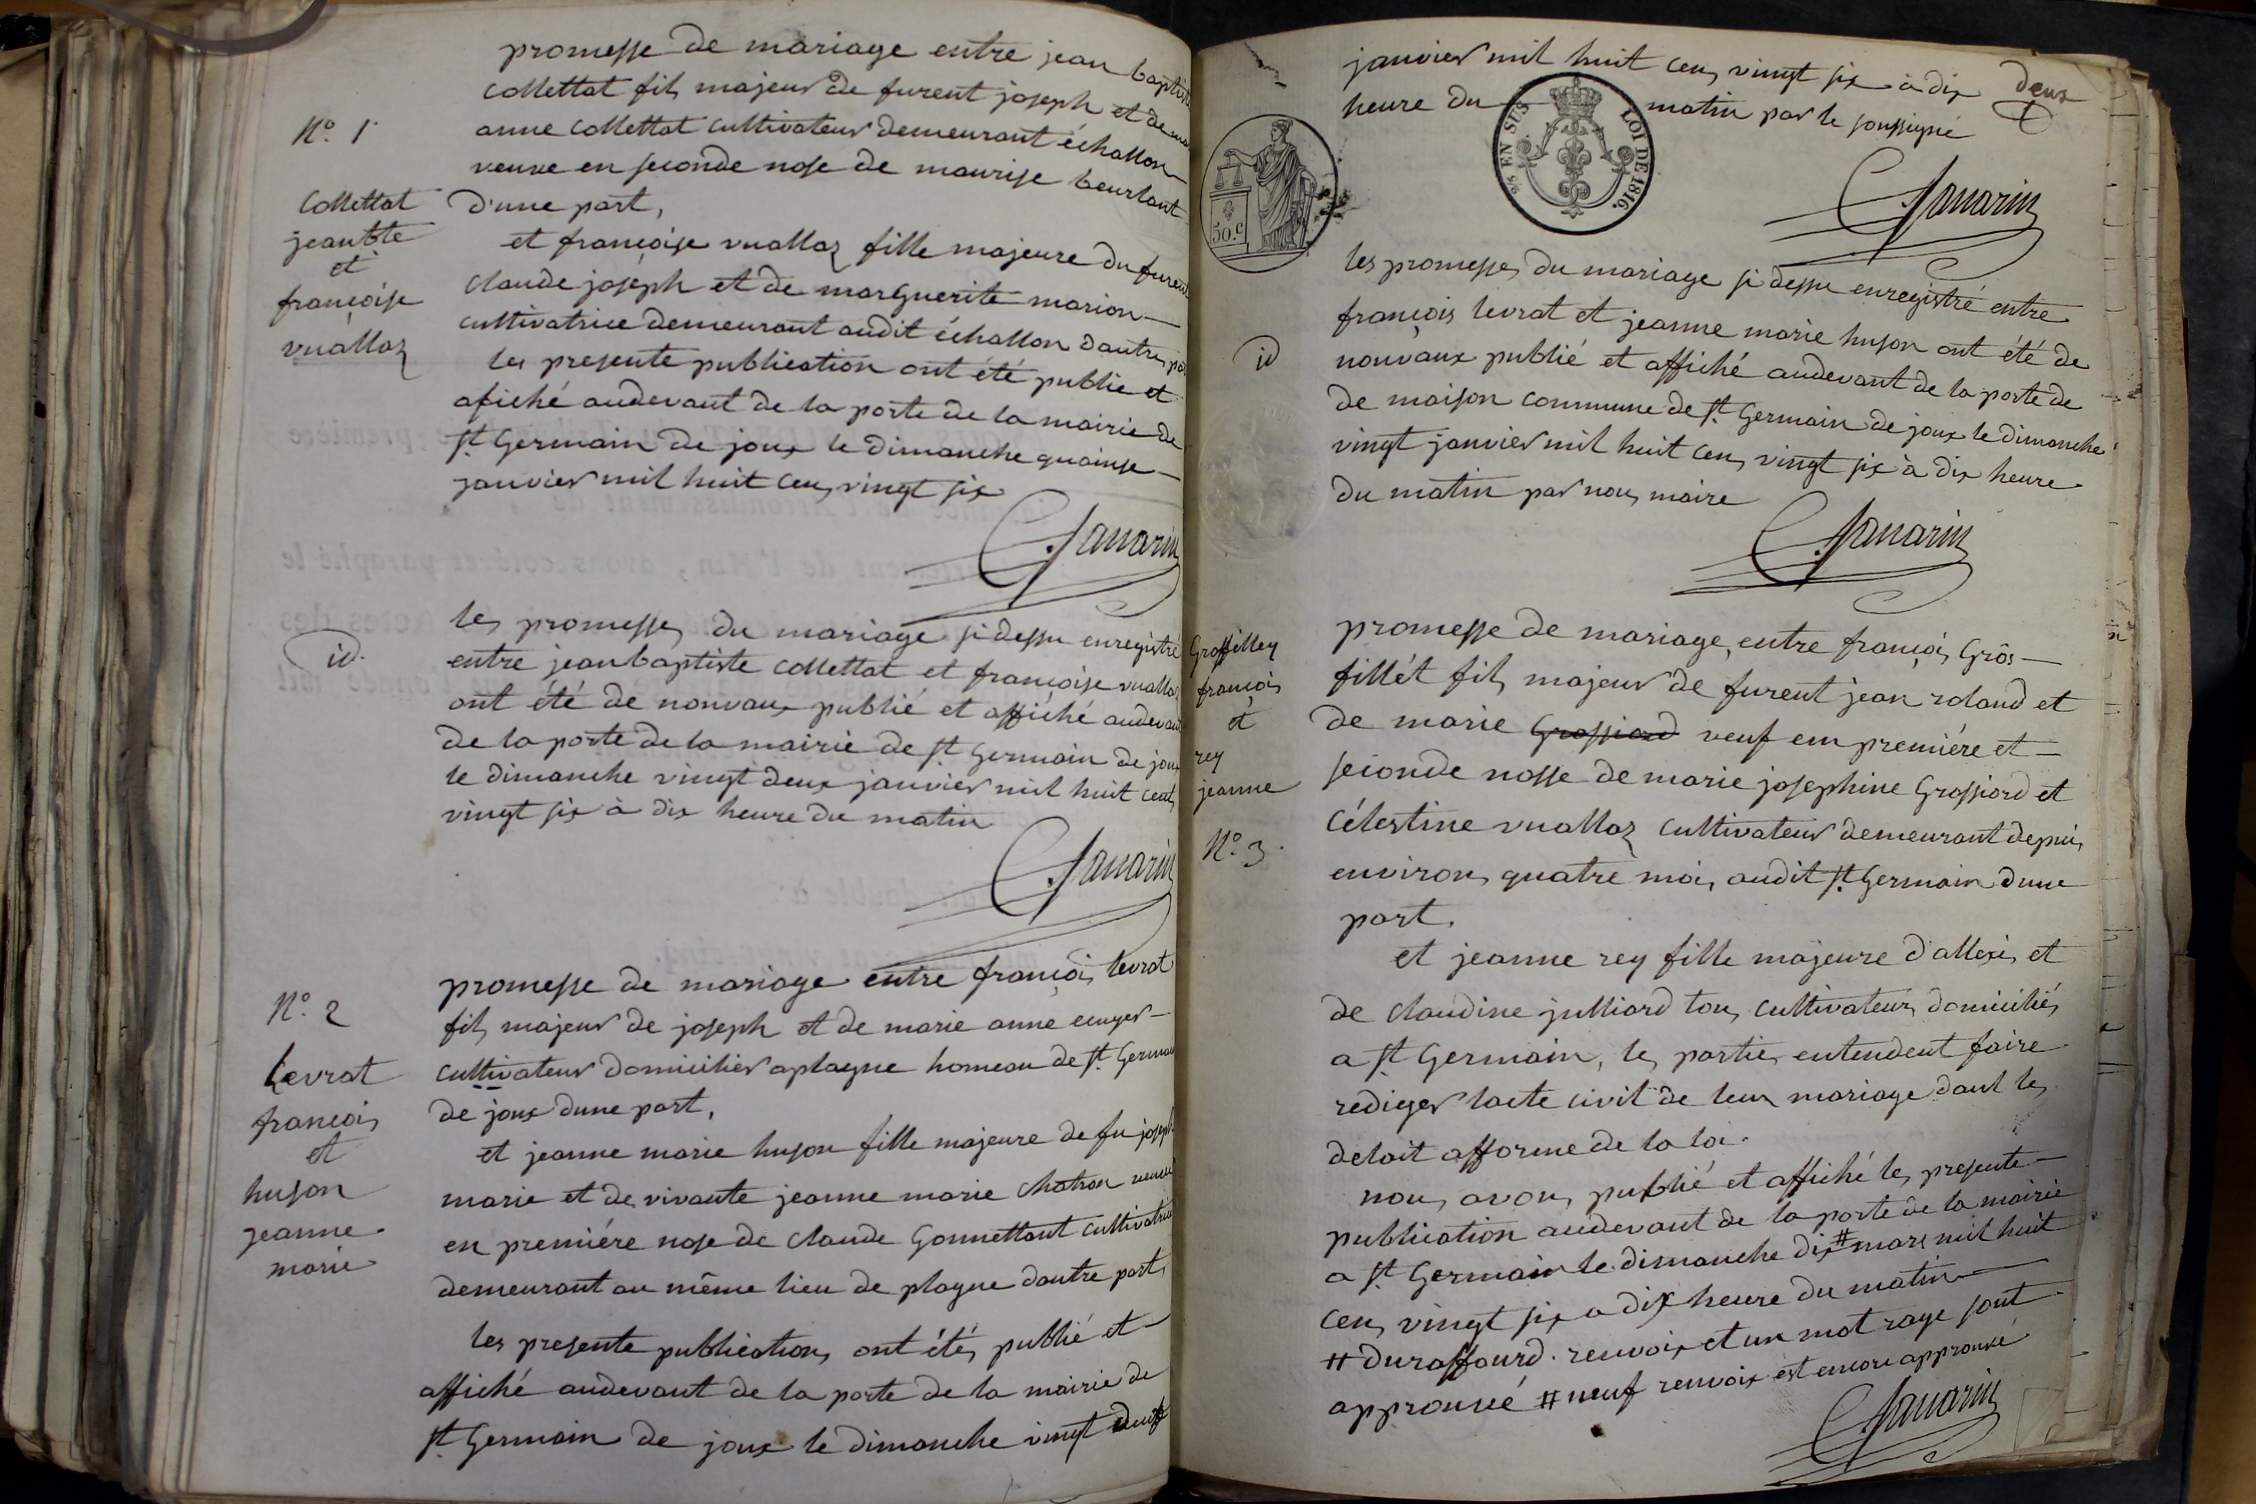 promesse de mariage entre jean baptiste
Collettat fils majeur de furent joseph et de
N.º 1
anne Collettat cultivateur demeurant échallon
veuve en seconde nose de maurise beurlant
Collettat
jean bte
et
françoise
vuallaz
d'une part,
et françoise vuallaz fille majeure du furent
claude joseph et de marguerite marion
cultivatrice demeurant audit échallon d'autre part
les presente publication ont été publie et
afiché audevant de la porte de la mairie de
St Germain de joux le dimanche quainse
janvier mil huit cens vingt six
CJanarin
id.
les promesses du mariage si dessu enregistré
entre jean baptiste Collettat et françoise vuallaz
ont été de nouvaux publié et affiché audevant
de la porte de la mairie de St Germain de joux
le dimanche vingt deux janvier mil huit cent
vingt six à dix heure du matin
CJanarin
N.º 2
Levrat
françois
et
huson
jeanne
marie
promesse de mariage entre françois levrat
fils majeur de joseph et de marie anne
cultivateur domicilier a plagne homeau de St Germain
de joux dune part,
et jeanne marie huson fille majeure de fu joseph
marie et de vivante jeanne marie chatron veuve
en premiére nose de claude Gonnettant cultivatrice
demeurant au même lieu de plagne dautre part
les presente publications ont étés publié et
affiché audevant de la porte de la mairie de
St Germain de joux le dimanche vingt deux
janvier mil huit cens vingt six à dix
heure du matin par le soussigné
deux
5/5 EN SUS
LOI DE 1816.
50.c
CJanarin
id
les promesses du mariage si dessu enregistré entre
françois levrat et jeanne marie huson ont été de
nouvaux publié et affiché audevant de la porte de
de maison commune de St Germain de joux le dimanche
vingt janvier mil huit cens vingt six à dix heure
du matin par nous maire
CJanarin
Grosfilley
françois
et
rey
jeanne
N.º 3
promesse de mariage, entre françois Grôs
fillét fils majeur de furent jean roland et
de marie Grossiord veuf em premiére et
seconde nosse de marie josephine Grossiord et
célestine vuallaz cultivateur demeurant depuis
environs quatre mois audit St Germain dune
part.
et jeanne rey fille majeure d'allexis et
de claudine julliard tous cultivateurs domiciliés
a St Germain, les parties entendent faire
rediger lacte civil de leur mariage dant les
delait afforme de la loi.
nous avons publié et affiché les presente
publication audevant de la porte de la mairie
a St Germain le dimanche dix # mars mil huit
cens vingt six a dix heure du matin
# duraffourd. renvoix et un mot raye sont
approuvé # neuf renvoix est encore approuvé
CJanarin